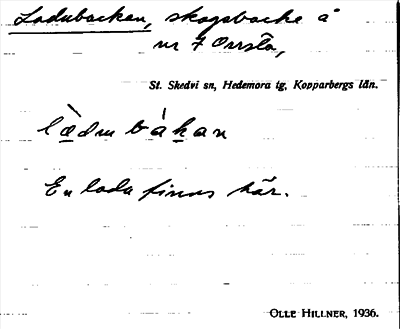 Ladubacken, skogsbacke å
nr 7 Orrsta,
St. Skedvi sn, Hedemora tg, Kopparbergs län.
En lada finns här.
OLLE HILLNER, 1936.